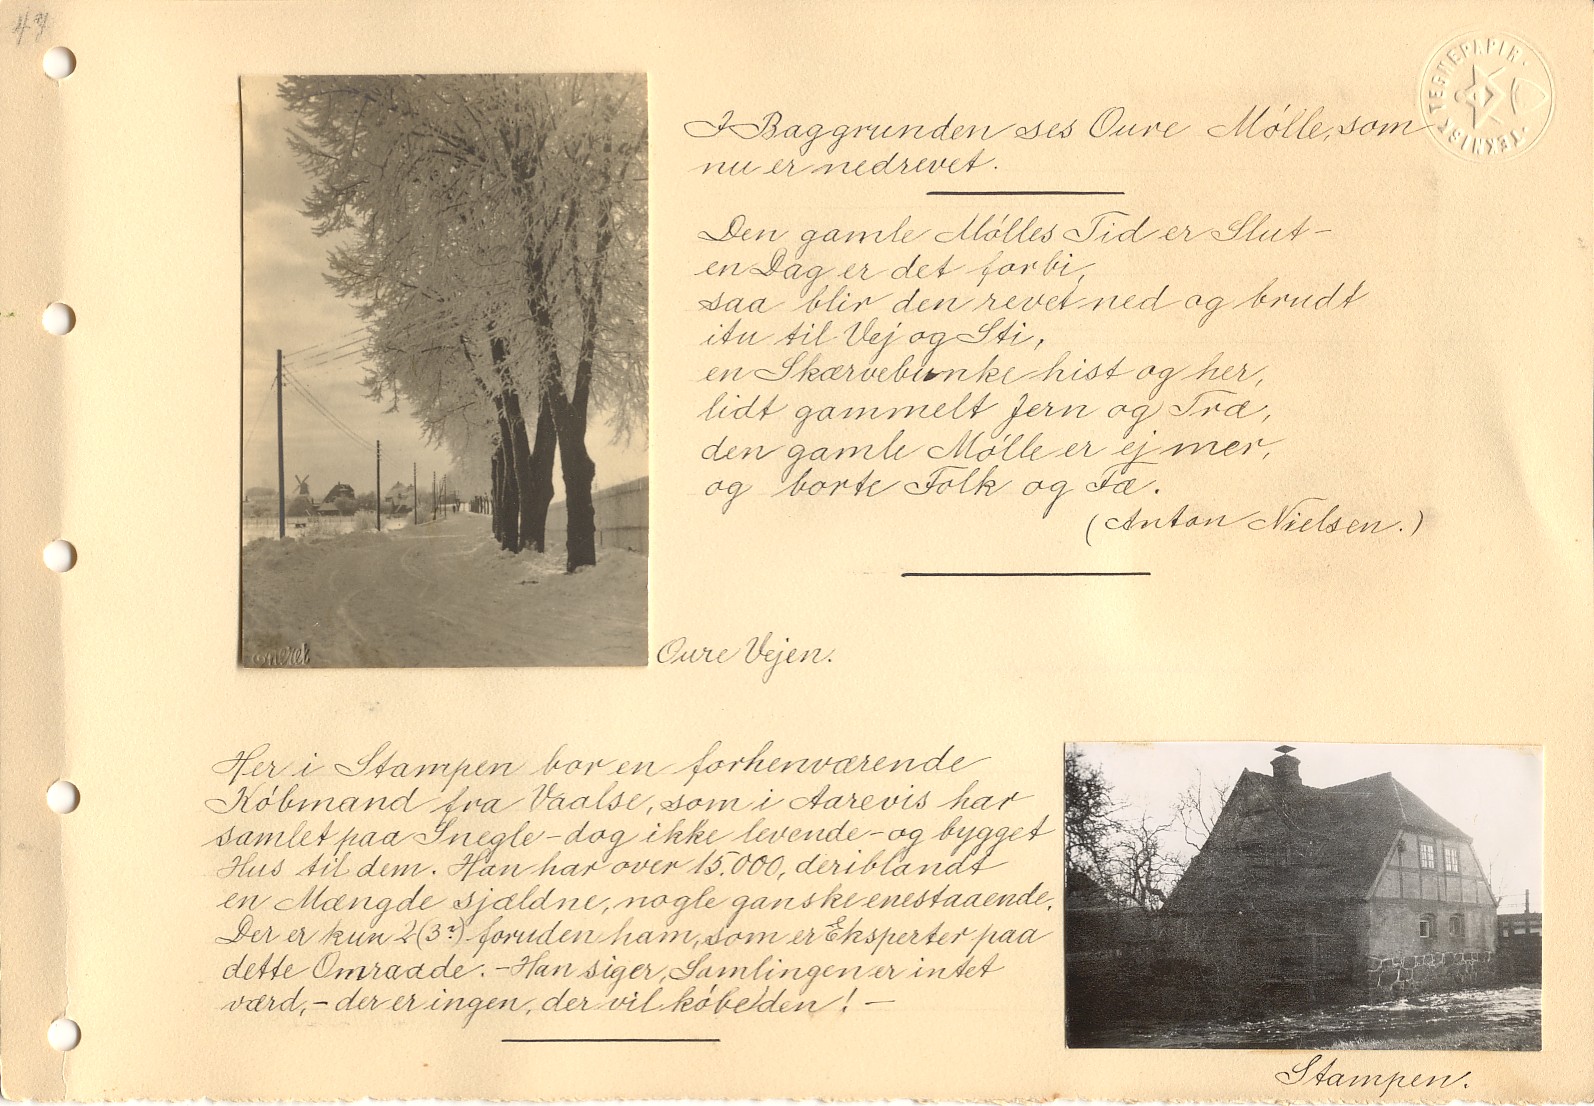 47
TEKNISK TEGNEPAPIR
I Baggrunden ses Oure Mølle, som
nu er nedrevet.
Den gamle Mølles Tid er Slut –
en Dag er det forbi,
saa blir den revet ned og brudt
itu til Vej og Sti,
en Skærvebunke hist og her,
lidt gammelt Jern og Træ,
den gamle Mølle er ej mer,
og borte Folk og Fæ.
(Anton Nielsen.)
Oure Vejen.
Her i Stampen bor en forhenværende
Købmand fra Vaalse, som i Aarevis har
samlet paa Snegle – dog ikke levende – og bygget
Hus til dem. Han har over 15.000, deriblandt
en Mængde sjældne, nogle ganske enestaaende.
Der er kun 2 (3?) foruden ham, som er Eksperter paa
dette Omraade. – Han siger, Samlingen er intet
værd, – der er ingen, der vil købe den! –
Stampen.